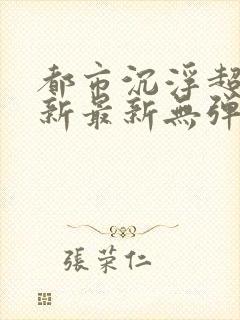 都市沉浮超
新最新無弹
張荣仁